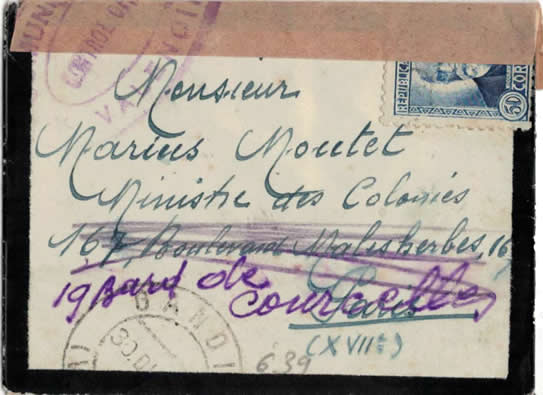 CONTROL
VA
REPUBLICA
50
COR
Monsieur
Marius Moutet
Ministre des Colonies
167, Boulevard Malesherbes, 167
19 Bard de
Courcelles
Paris
(XVIIe)
GANDI
30.DI
6.39